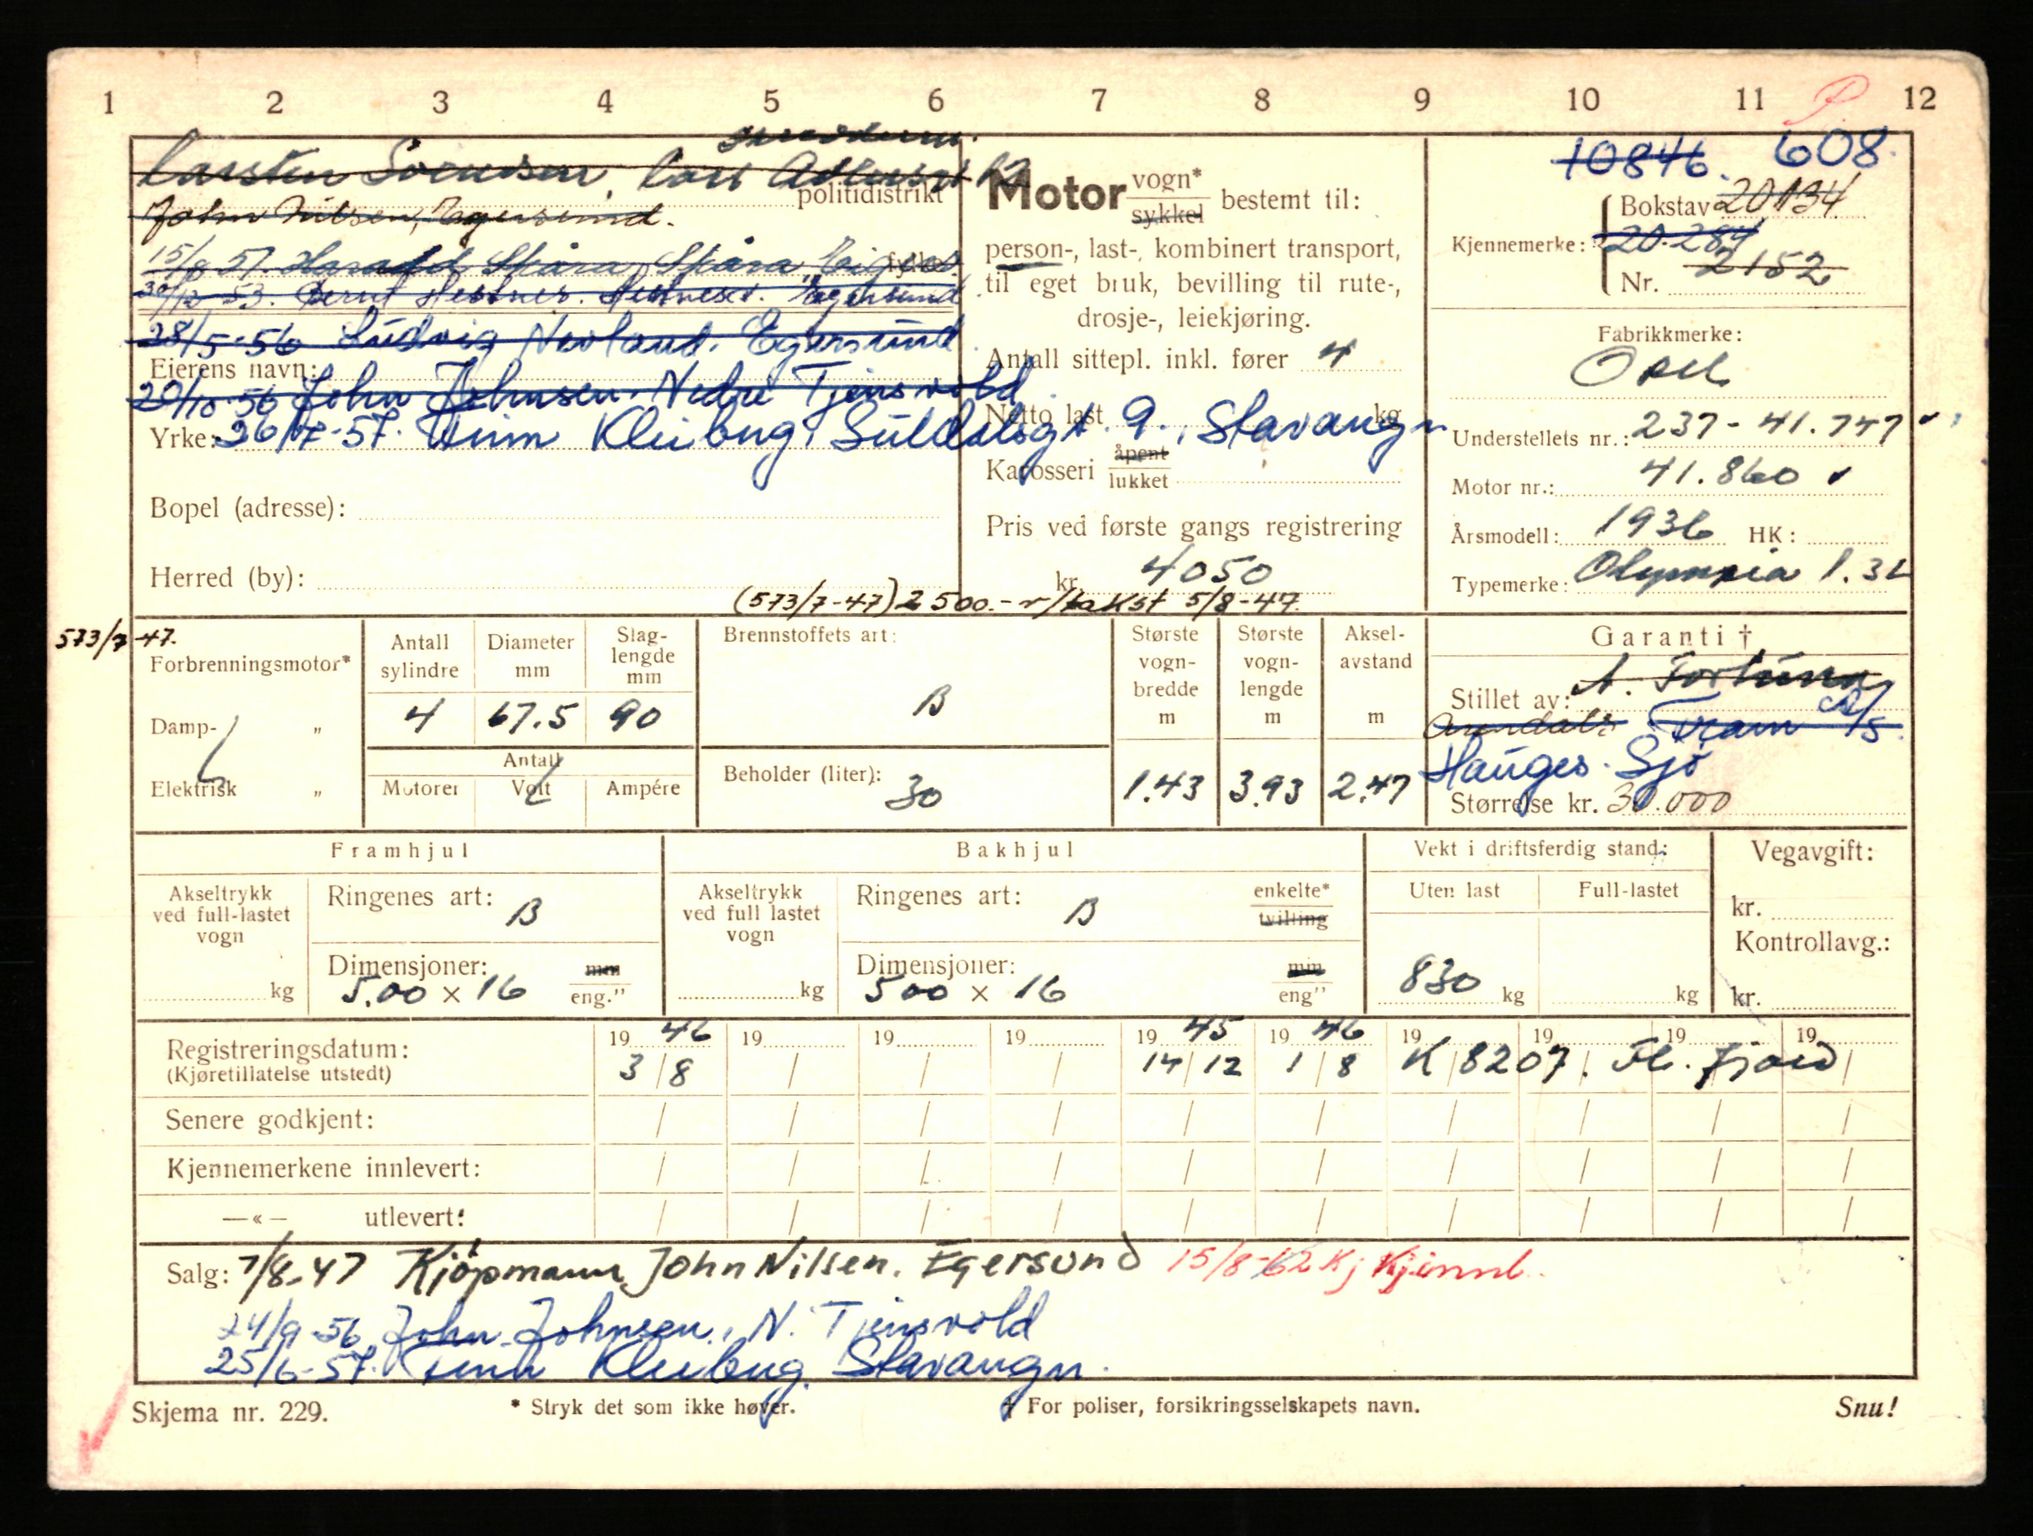 1 2 3 4 5 6 7 8 9 10 11 12
P.
Carsten Sørensen, Carl
politidistrikt
John Nilsen, Egersund.
Harald Skåra, Skåra, Eigers.
30/12 53. Bernt Hestnes. Egersund
28/5-56 Ludvig Nevland. Egersund
Eierens navn:
20/10-56 John Johnsen. Nedre Tjensvold
Yrke: 26/7-57. Finn Kleiberg, Suldalsgt. 9., Stavanger
Bopel (adresse):
Herred (by):
Motor vogn* sykkel bestemt til:
person-, last-, kombinert transport,
til eget bruk, bevilling til rute-,
drosje-, leiekjøring.
Antall sittepl. inkl. fører 4
Netto last kg
Karosseri åpent lukket
Pris ved første gangs registrering
kr. 4050
(573/7-47) 2500.- v/takst 5/8-47.
10846. 608.
Kjennemerke: Bokstav 20134
20-284
Nr. 2152
Fabrikkmerke:
Opel
Understellets nr.: 237-41.747
Motor nr.: 41.860
Årsmodell: 1936 HK:
Typemerke: Olympia 1.3L
573/7-47.
Forbrenningsmotor*
Damp- „
Elektrisk „
Antall sylindre 4
Diameter mm 67.5
Slag-lengde mm 90
Antall
Motorer Volt Ampére
Brennstoffets art:
B
Beholder (liter): 30
Største vogn-bredde m 1.43
Største vogn-lengde m 3.93
Aksel-avstand m 2.47
Garanti †
Stillet av: A. Fortuna
Arendals Fram A/S.
Hauges. Sjø
Størrelse kr. 30.000
Framhjul
Akseltrykk ved full-lastet vogn
kg
Ringenes art: B
Dimensjoner: mm
5.00 x 16 eng."
Bakhjul
Akseltrykk ved full lastet vogn
kg
Ringenes art: B enkelte* tvilling
Dimensjoner: mm
500 x 16 eng"
Vekt i driftsferdig stand:
Uten last Full-lastet
830 kg kg
Vegavgift:
kr.
Kontrollavg.:
kr.
19 46 19 19 19 19 45 19 46 19 19 19 19
Registreringsdatum: 3/8 / / / 14/12 1/8 K 8207. Fl. fjord
(Kjøretillatelse utstedt)
Senere godkjent:
Kjennemerkene innlevert:
—«— utlevert:
Salg: 7/8-47 Kjøpmann John Nilsen. Egersund 15/8-62 Kj
24/9-56 John Johnsen, N. Tjensvold
25/6-57. Finn Kleiberg. Stavanger.
Skjema nr. 229.
* Stryk det som ikke høver.
† For poliser, forsikringsselskapets navn.
Snu!